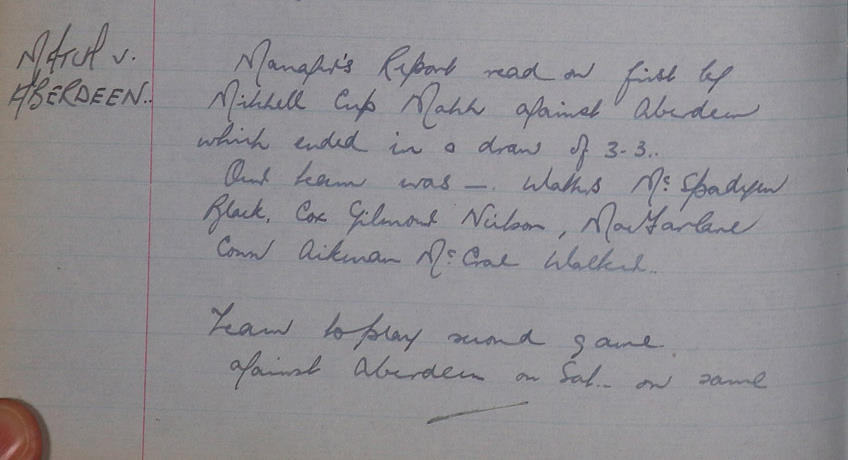 MATCH v.
ABERDEEN..
Manager's Report read on first leg
Mitchell Cup Match against Aberdeen
which ended in a draw of 3-3..
Our team was — Waters McSpadyen
Black, Cox Gilmour Neilson, MacFarlane
Conn Aikman McCrae Walker..
Team to play second game
against Aberdeen on Sat.. on same